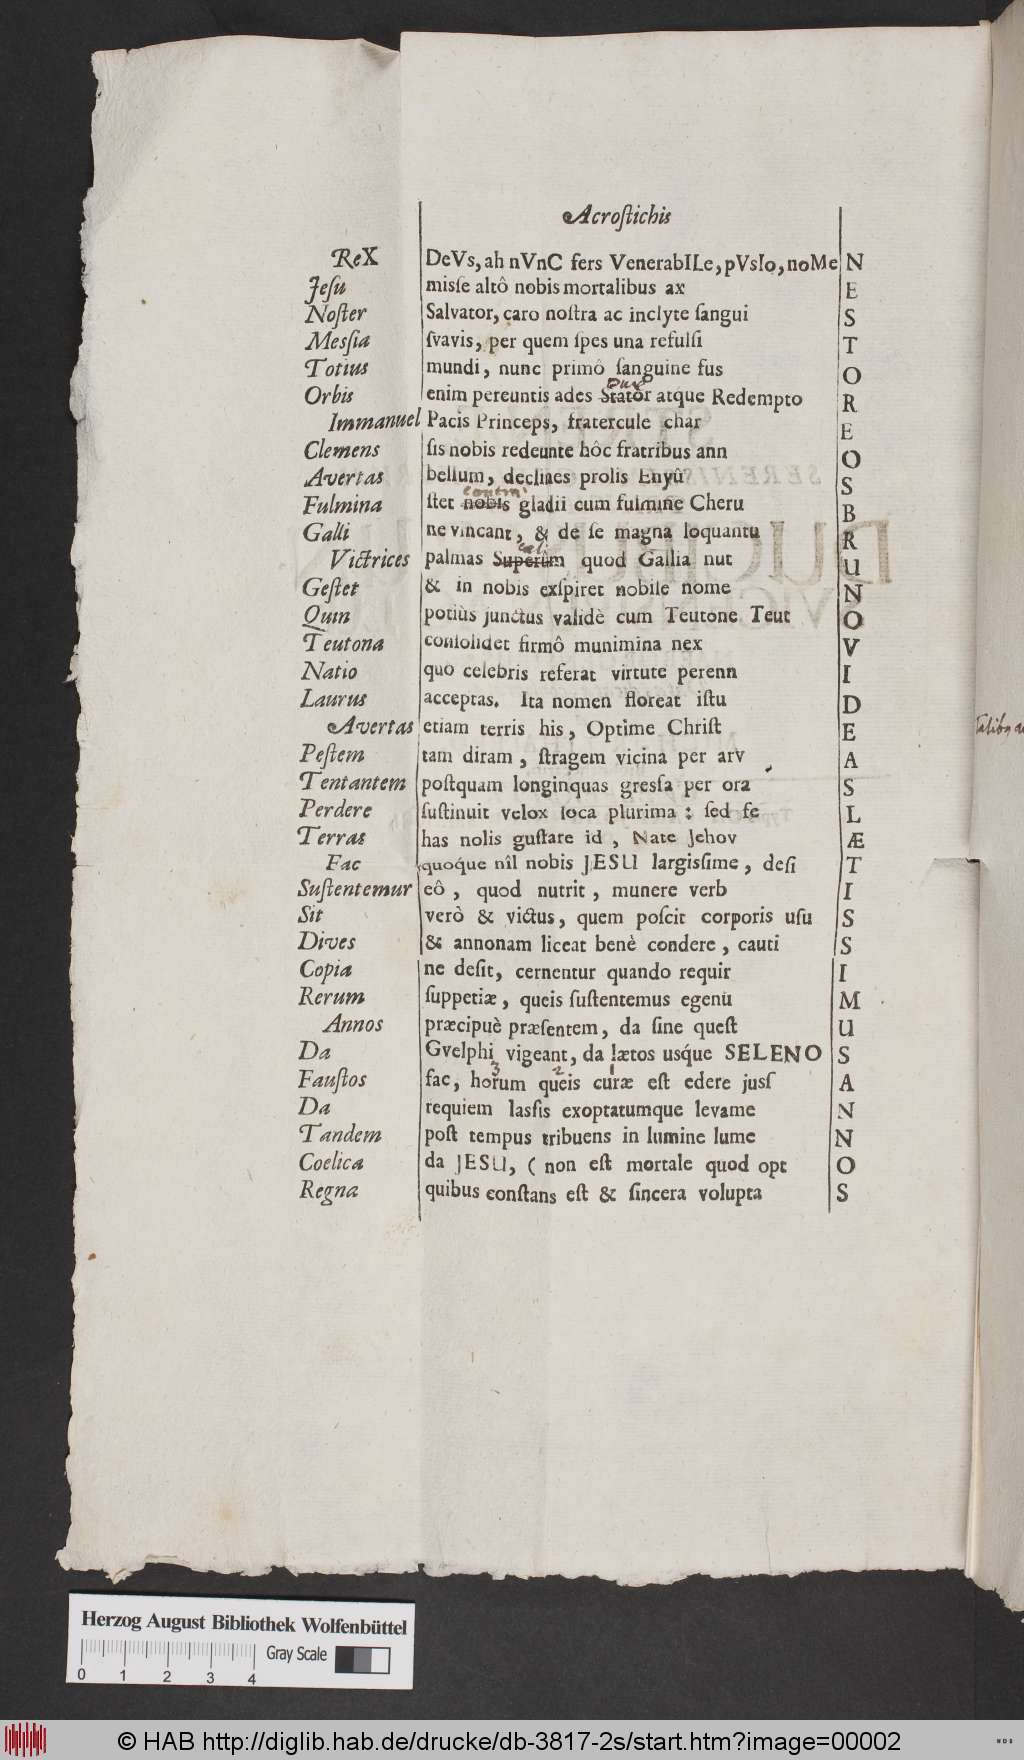 Acroſtichis
ReX DeVs, ah nVnC fers VenerabILe, pVsIo, noMe N
Jeſu miſſe altô nobis mortalibus ax E
Noſter Salvator, caro noſtra ac inclyte ſangui S
Meſſia ſvavis, per quem ſpes una refulſi T
Totius mundi, nunc primô ſanguine fus O
Orbis enim pereuntis ades Stator atque Redempto R
Immanuel Pacis Princeps, fratercule char E
Clemens ſis nobis redeunte hôc fratribus ann O
Avertas bellum, declines prolis Enyû S
contra
Fulmina ſtet nobis gladii cum fulmine Cheru B
Galli ne vincant, & de ſe magna loquantu R
Victrices palmas Superûm quod Gallia nut U
Geſtet & in nobis exſpiret nobile nome N
Quin potiùs junctus validè cum Teutone Teut O
Teutona conſolidet firmô munimina nex V
Natio quo celebris referat virtute perenn I
Laurus acceptas. Ita nomen floreat iſtu D
Avertas etiam terris his, Optime Chriſt E
Peſtem tam diram, ſtragem vicina per arv A
Tentantem poſtquam longinquas greſſa per ora S
Perdere ſuſtinuit velox loca plurima: ſed ſe L
Terras has nolis guſtare id, Nate Jehov Æ
Fac quoque nîl nobis JESU largiſſime, deſi T
Suſtentemur eô, quod nutrit, munere verb I
Sit verò & victus, quem poſcit corporis uſu S
Dives & annonam liceat benè condere, cauti S
Copia ne deſit, cernentur quando requir I
Rerum ſuppetiæ, queis ſuſtentemus egenû M
Annos præcipuè præſentem, da ſine queſt U
Da Gvelphi vigeant, da lætos usque SELENO S
3 2 1
Fauſtos fac, horum queis curæ eſt edere juſſ A
Da requiem laſſis exoptatumque levame N
Tandem poſt tempus tribuens in lumine lume N
Coelica da JESU, ( non eſt mortale quod opt O
Regna quibus conſtans eſt & ſincera volupta S
Herzog August Bibliothek Wolfenbüttel
Gray Scale
0 1 2 3 4
© HAB http://diglib.hab.de/drucke/db-3817-2s/start.htm?image=00002